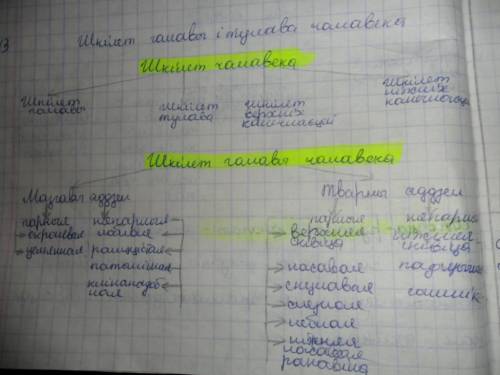 Шкілет галавы і тулава чалавека
Шкілет чалавека
Шкілет галавы
Шкілет тулава
Шкілет верхніх канечнасцей
Шкілет ніжніх канечнасцей
Шкілет галавы чалавека
Мазгавы аддзел
Тварны аддзел
парныя
няпарныя
скроневая
лобная
цемянная
рашэцістая
патылічная
клінападобная
парныя
няпарны
верхняя сківіца
ніжняя сківіца
насавая
пад'язычная
скулавая
сашнік
слёзная
нёбная
ніжняя насавая ракавіна